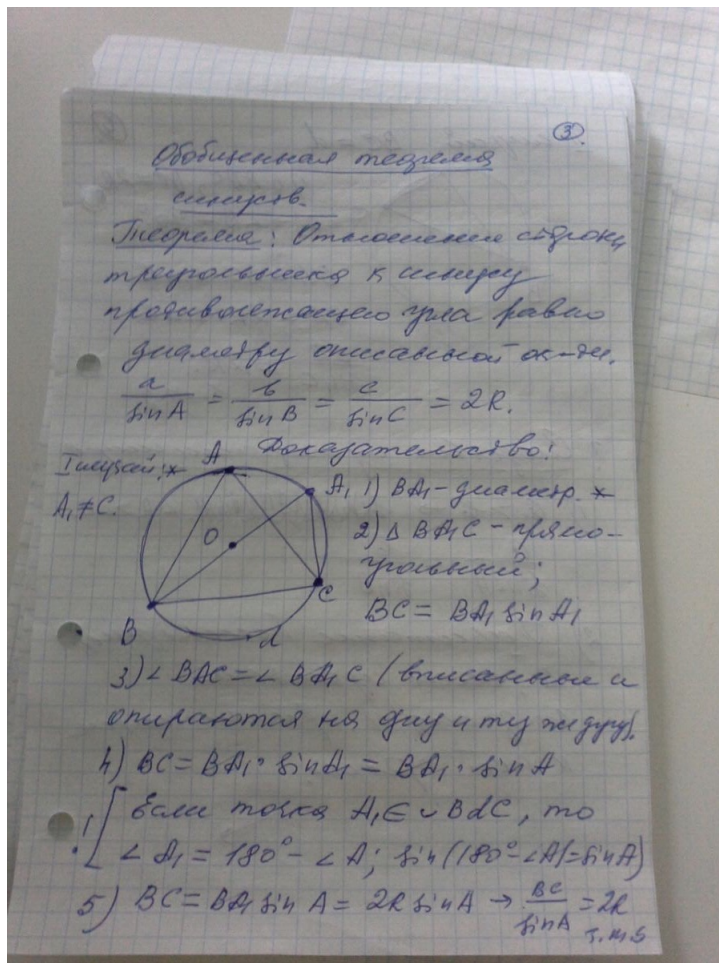 3.
Обобщенная теорема
синусов.
Теорема: Отношение стороны
треугольника к синусу
противолежащего угла равно
диаметру описанной ок-ти.
a/sinA = b/sinB = c/sinC = 2R.
Доказательство:
I случай: *
A₁ ≠ C.
A
A₁
O
B
C
d
1) BA₁ - диаметр. *
2) Δ BA₁C - прямо-
угольный;
BC = BA₁ sinA₁
3) ∠ BAC = ∠ BA₁C (вписанные и
опираются на одну и ту же дугу).
4) BC = BA₁ · sinA₁ = BA₁ · sinA
! [ Если точка A₁ ∈ ◡ BdC, то
∠ A₁ = 180° - ∠ A; sin(180° - ∠A) = sinA)
5) BC = BA₁ sin A = 2R sinA → BC/sinA = 2R
ч.т.д